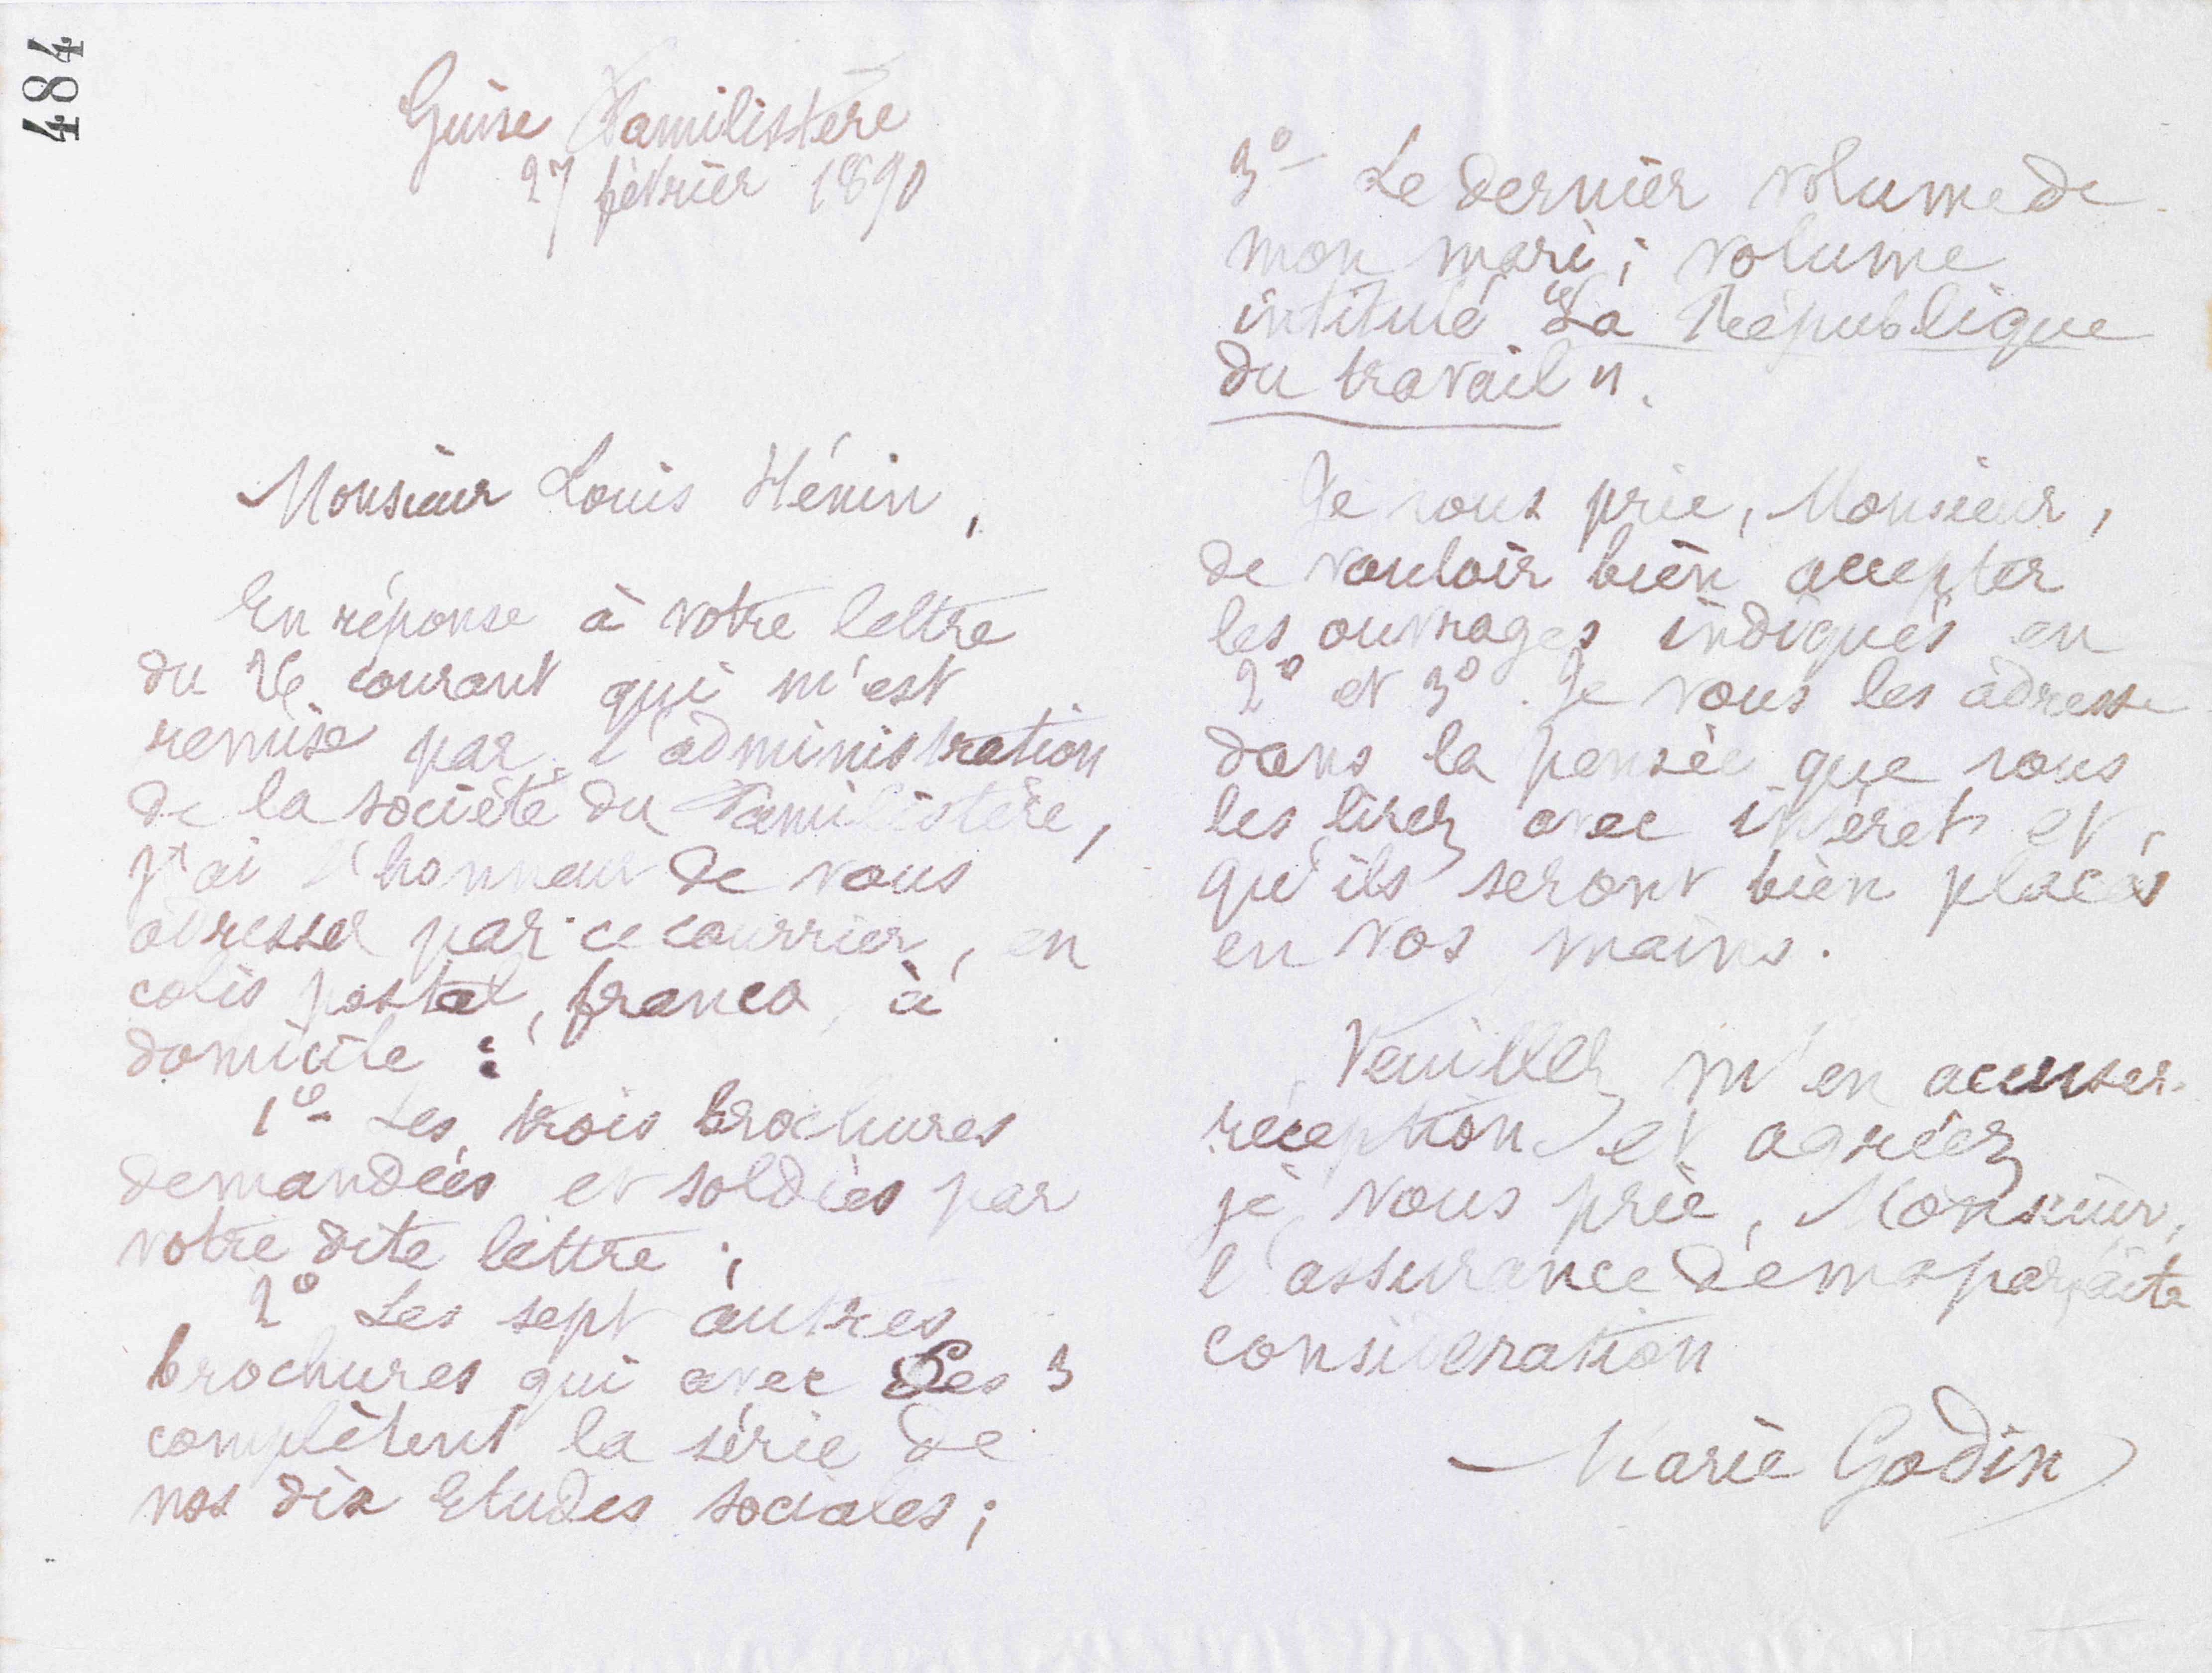 484
Guise Familistère
27 février 1890
Monsieur Louis Hénin,
En réponse à votre lettre
du 26 courant qui m'est
remise par l'administration
de la société du Familistère,
j'ai l'honneur de vous
adresser par ce courrier, en
colis postal, franco, à
domicile :
1º - Les trois brochures
demandées et soldées par
votre dite lettre ;
2º Les sept autres
brochures qui avec les 3
complètent la série de
nos dix Etudes sociales ;
3º - Le dernier volume de
mon mari ; volume
intitulé "La République
du travail".
Je vous prie, Monsieur,
de vouloir bien accepter
les ouvrages indiqués en
2º et 3º. Je vous les adresse
dans la pensée que vous
les lirez avec intérêt et
qu'ils seront bien placés
en vos mains.
Veuillez m'en accuser
réception et agréez
je vous prie, Monsieur,
l'assurance de ma parfaite
considération
Marie Godin